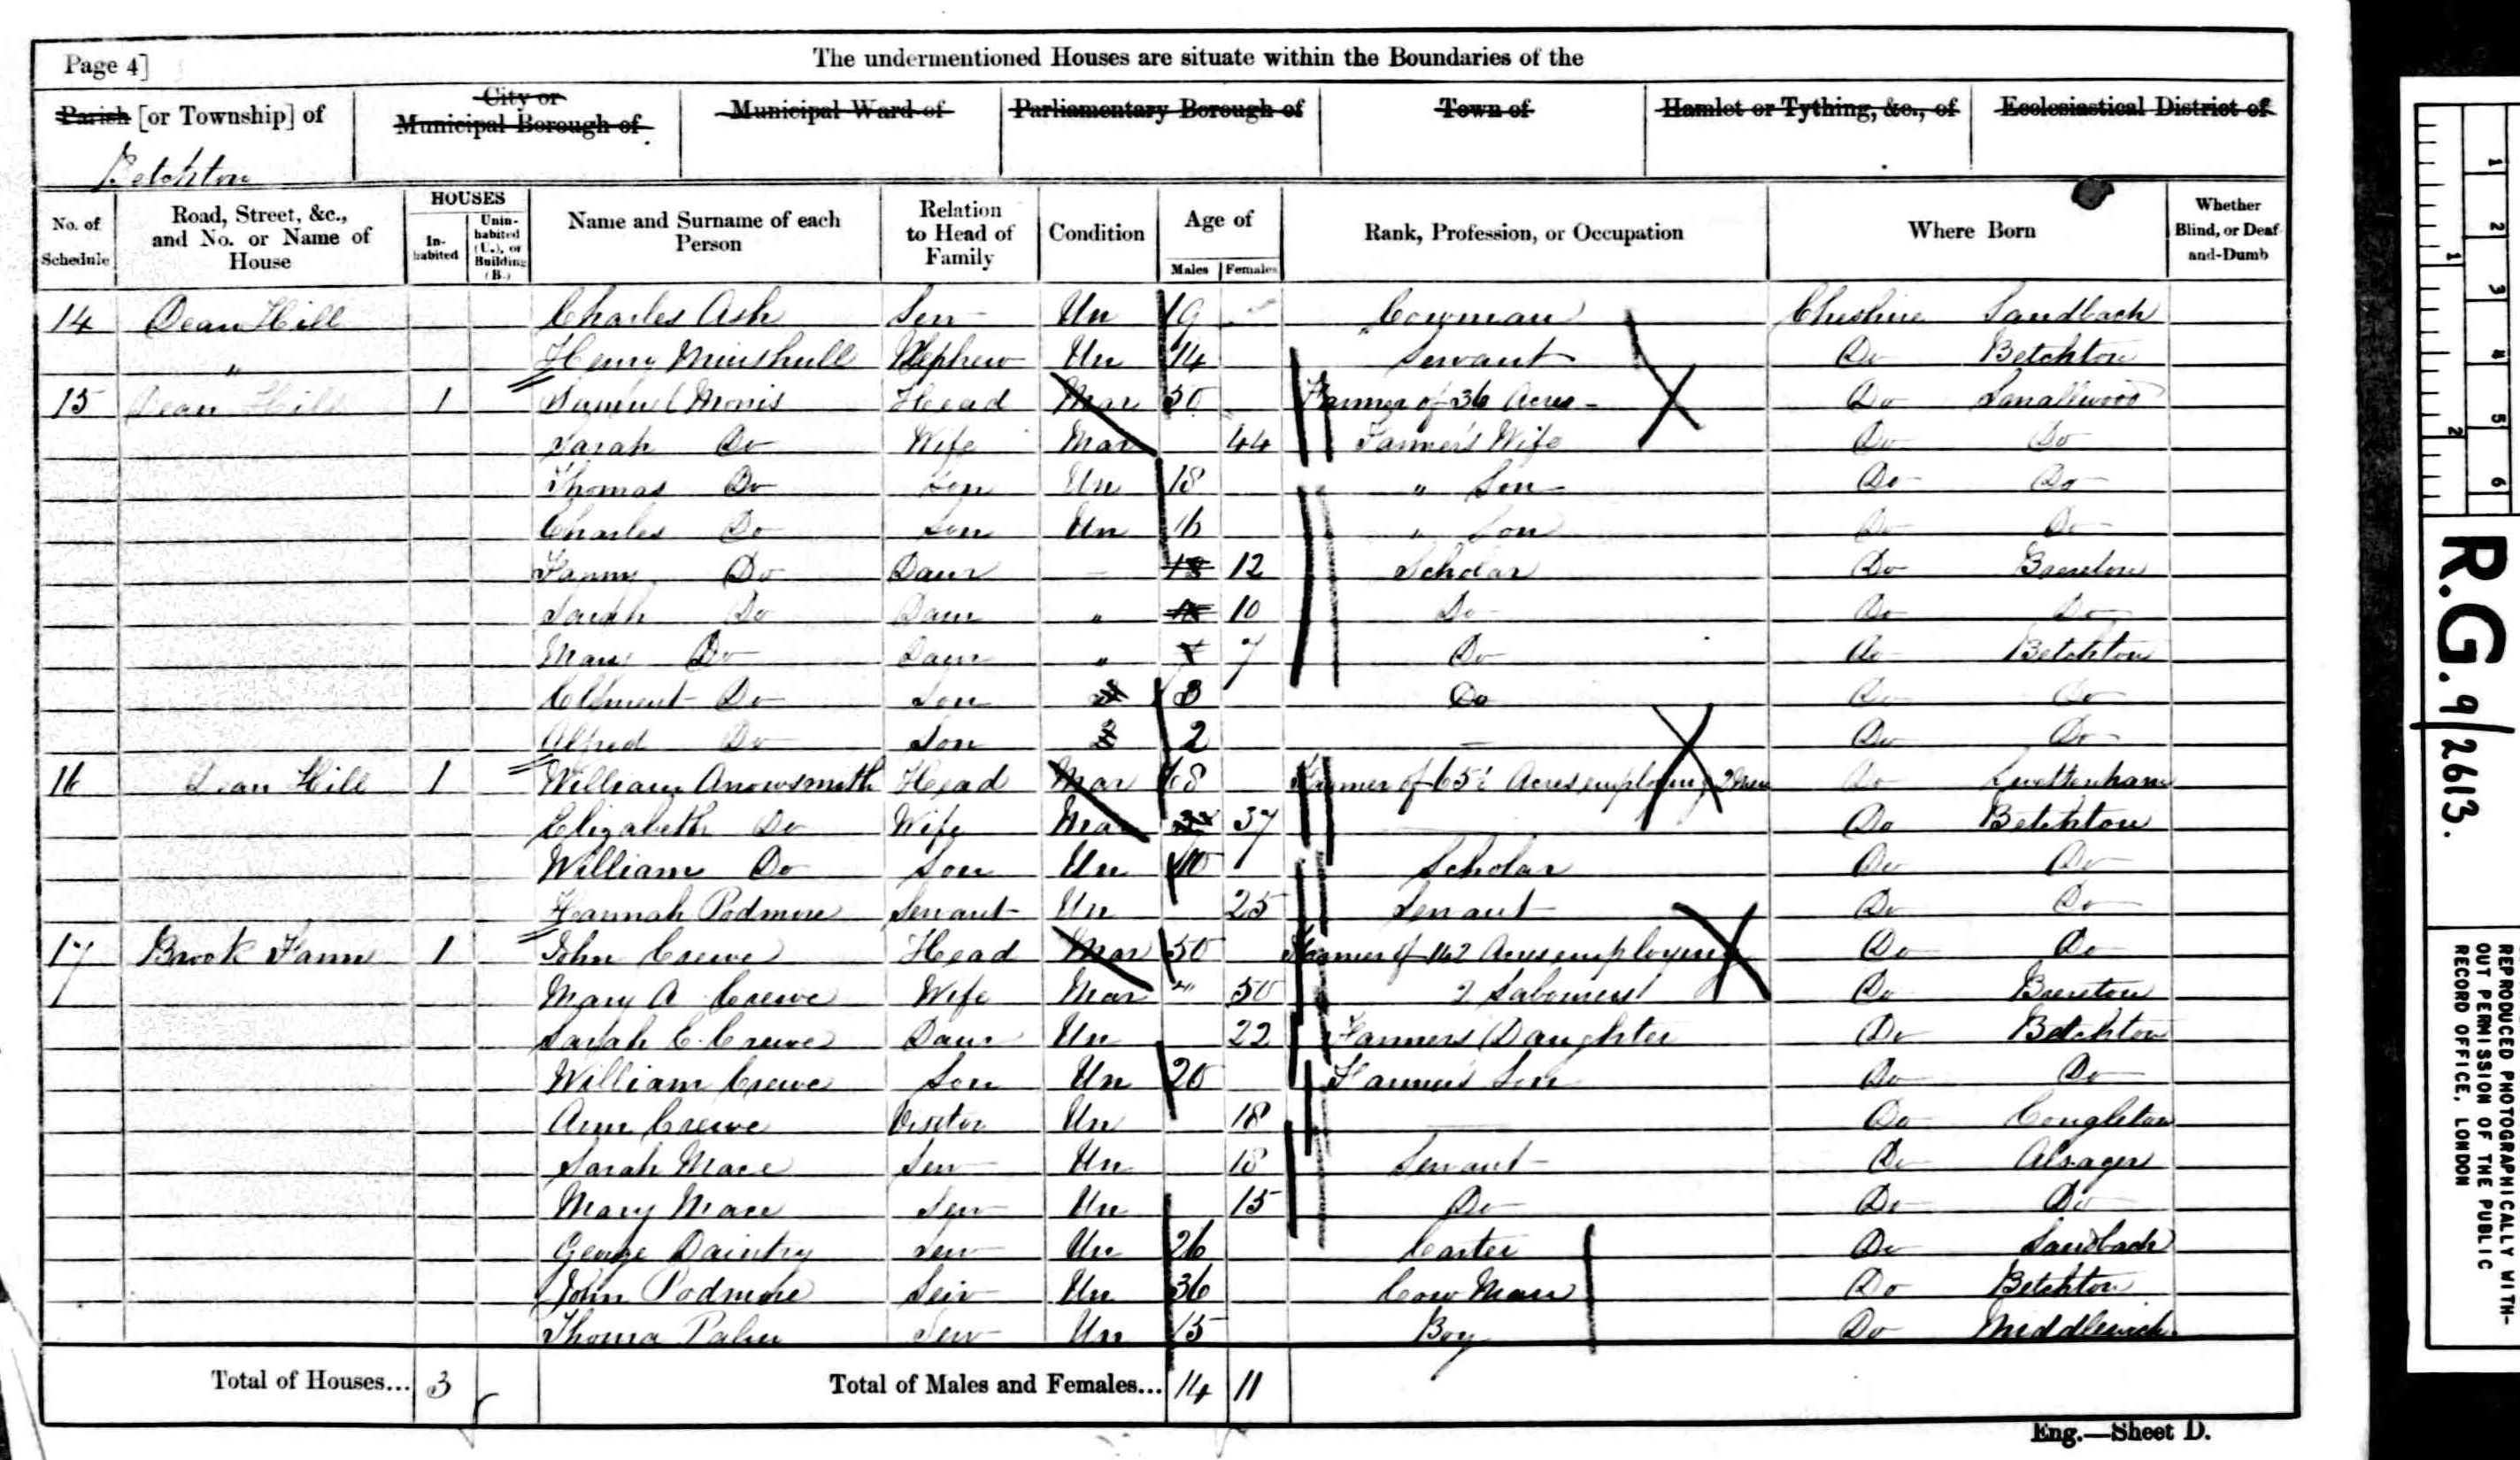 Page 4]
The undermentioned Houses are situate within the Boundaries of the
Parish [or Township] of
City or Municipal Borough of
Municipal Ward of
Parliamentary Borough of
Town of
Hamlet or Tything, &c., of
Ecclesiastical District of
Betchton
No. of Schedule
Road, Street, &c., and No. or Name of House
HOUSES
In-habited
Unin-habited (U.), or Building (B.)
Name and Surname of each Person
Relation to Head of Family
Condition
Age of
Males
Females
Rank, Profession, or Occupation
Where Born
Whether Blind, or Deaf-and-Dumb
14 Dean Hill Charles Ash Ser Un 19 Cowman Cheshire Sandbach
" Henry Minshull Nephew Un 14 Servant Do Betchton
15 Dean Hill 1 Samuel Morris Head Mar 50 Farmer of 36 Acres Do Smallwood
Sarah Do Wife Mar 44 Farmer's Wife Do Do
Thomas Do Son Un 18 " Son Do Do
Charles Do Son Un 16 " Son Do Do
Fanny Do Daur 12 Scholar Do Brereton
Sarah Do Daur " 10 Do Do Do
Mary Do Daur " 7 Do Do Betchton
Clement Do Son 3 Do Do Do
Alfred Do Son 2 — Do Do
16 Dean Hill 1 William Arrowsmith Head Mar 68 Farmer of 65 Acres employing 2 Men Do Swettenham
Elizabeth Do Wife Mar 37 — Do Betchton
William Do Son Un 10 Scholar Do Do
Hannah Podmore Servant Un 25 Servant Do Do
17 Brook Farm 1 John Crewe Head Mar 50 Farmer of 142 Acres employing Do Do
Mary A Crewe Wife Mar " 50 2 Labourers Do Brereton
Sarah C. Crewe Daur Un 22 Farmers Daughter Do Betchton
William Crewe Son Un 20 Farmer's Son Do Do
Ann Crewe Visitor Un 18 — Do Congleton
Sarah Mace Ser Un 18 Servant Do Alsager
Mary Mace Ser Un 15 Do Do Do
George Daintry Ser Un 26 Carter Do Sandbach
John Podmore Ser Un 36 Cow Man Do Betchton
Thoma Ser Un 15 Boy Do Middlewich
Total of Houses... 3
Total of Males and Females... 14 11
Eng.—Sheet D.
1 2 3 4 5 6
1 2
R.G. 9/2613.
REPRODUCED PHOTOGRAPHICALLY WITH-
OUT PERMISSION OF THE PUBLIC
RECORD OFFICE, LONDON